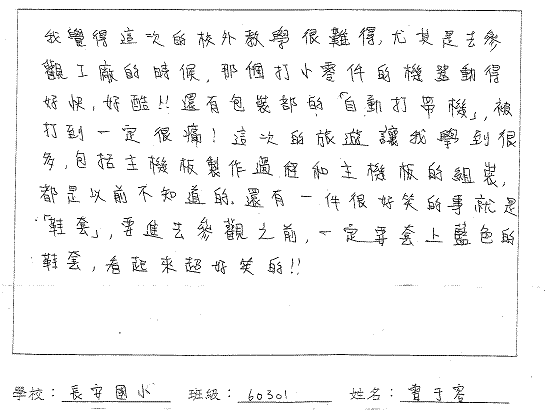 我覺得這次的校外教學很難得,尤其是去參
觀工廠的時候,那個打小零件的機器動得
好快,好酷!!還有包裝部的「自動打帶機」,被
打到一定很痛!這次的旅遊讓我學到很
多,包括主機板製作過程和主機板的組裝,
都是以前不知道的.還有一件很好笑的事就是
「鞋套」,要進去參觀之前,一定要套上藍色的
鞋套,看起來超好笑的!!
學校:長安國小 班級:60301 姓名:于容